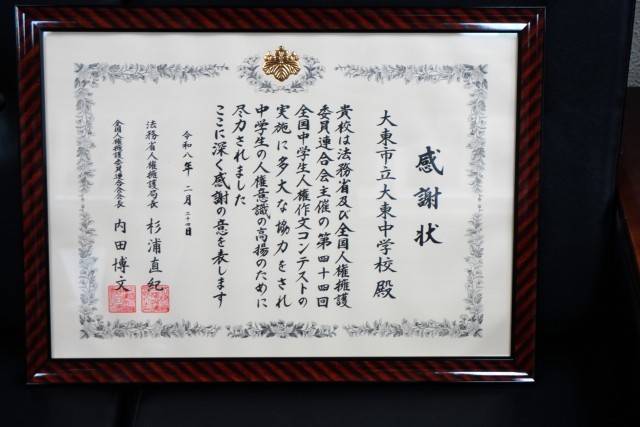 感謝状
大東市立大東中学校殿
貴校は法務省及び全国人権擁護
委員連合会主催の第四十四回
全国中学生人権作文コンテストの
実施に多大な協力をされ
中学生の人権意識の高揚のために
尽力されました
ここに深く感謝の意を表します
令和八年二月二十四日
法務省人権擁護局長 杉浦直紀
全国人権擁護委員連合会会長 内田博文